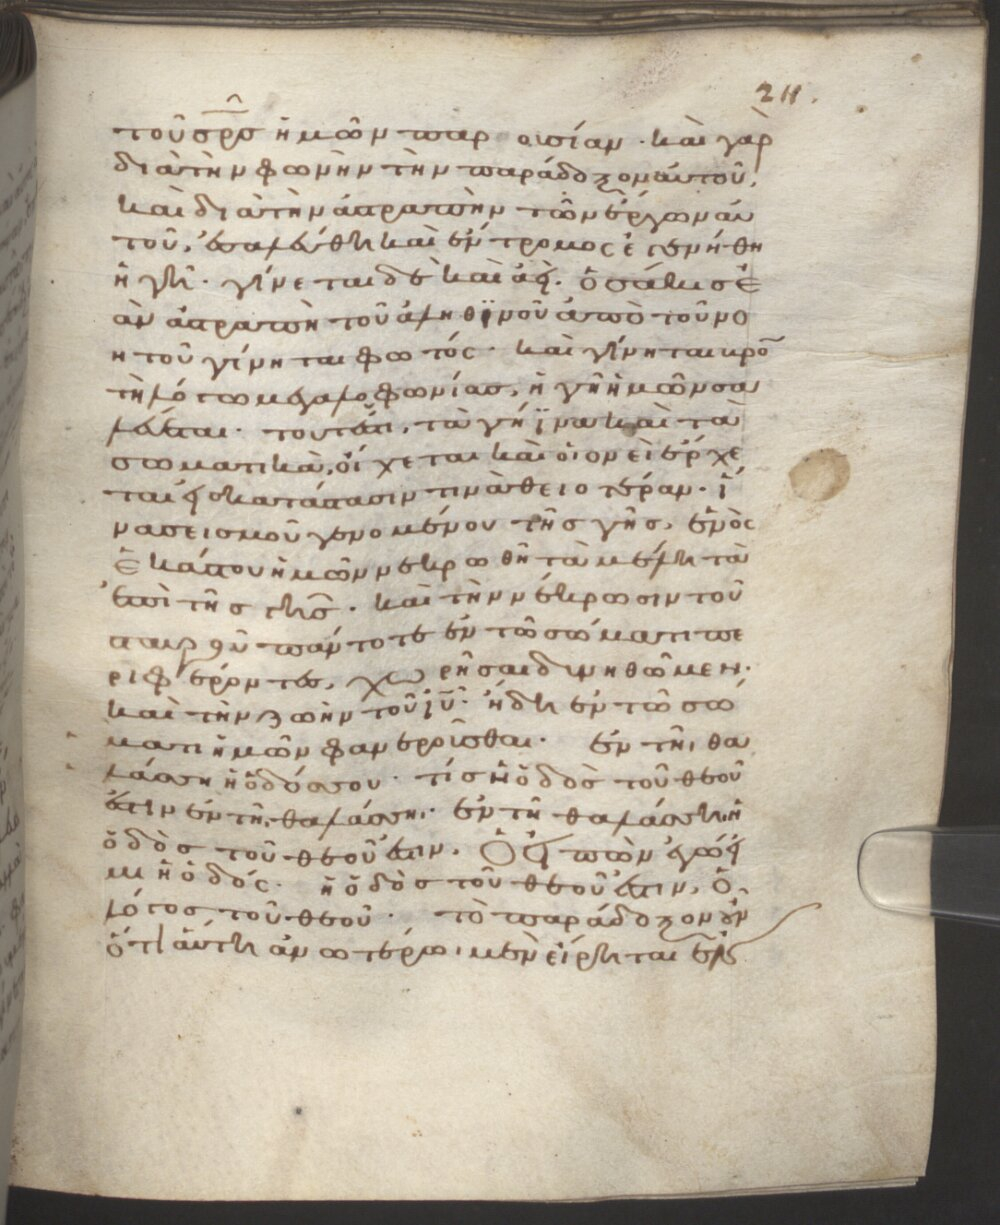 τοῦ σρσ ἡμῶν παρουσίαν· καὶ γὰρ
διὰ τὴν φωνὴν τὴν παράδοξον αὐτοῦ,
καὶ διὰ τὴν ἀστραπὴν τῶν ἔργων αὐ
τοῦ, ἐσαλεύθη καὶ ἔντρομος ἐγενήθη
ἡ γῆ· γίνεται δὲ καὶ ἀεί. ὁσάκισ ἐ
ὰν ἀστραπὴ τοῦ ἀληθϊνοῦ ἀπὸ τοῦ νο
ητοῦ γίνηται φωτός· καὶ γίνηται
λόγω μεγαλοφωνίασ, ἡ γῆ ἡμῶν σα
λεύεται· τουτέστι, τὰ γήϊνα καὶ τὰ
σωματικὰ, οἴχεται καὶ οἱονεὶ ἔρχε
ται εἰσ κατάστασιν τινὰ θειοτέραν· ἵ
να σεισμοῦ γενομένου τῆσ γῆσ, ἑνὸς
ἑκάστου ἡμῶν νεκρωθῆ τὰ μέλη τὰ
ἐπὶ τῆσ γῆσ· καὶ τὴν νέκρωσιν τοῦ
πάντοτε ἐν τῶ σώματι πε
ριφέροντεσ, χωρῆσαι δυνηθῶμεν·
καὶ τὴν ζωὴν τοῦ ἰῦ· ἤδη ἐν τῶ σώ
ματι ἡμῶν φανεροῦσθαι· ἐν τῆ θα
λάσση ἡ ὁδόσ σου· τίσ ἡ ὁδὸσ τοῦ θεοῦ
ἐστιν ἐν τῆ θαλάσση· ἐν τῆ θαλάσση ἡ
ὁδὸσ τοῦ θεοῦ ἐστιν. ὁ εἰπὼν ἐγώ εἰ
μι ἡ ὁδός· ἡ ὁδὸσ τοῦ θεοῦ ἐστιν, ὁ
λόγοσ τοῦ θεοῦ· τὸ παράδοξον οὖν
ὅτι αὕτη ἀνωτέρω μὲν εἴρηται